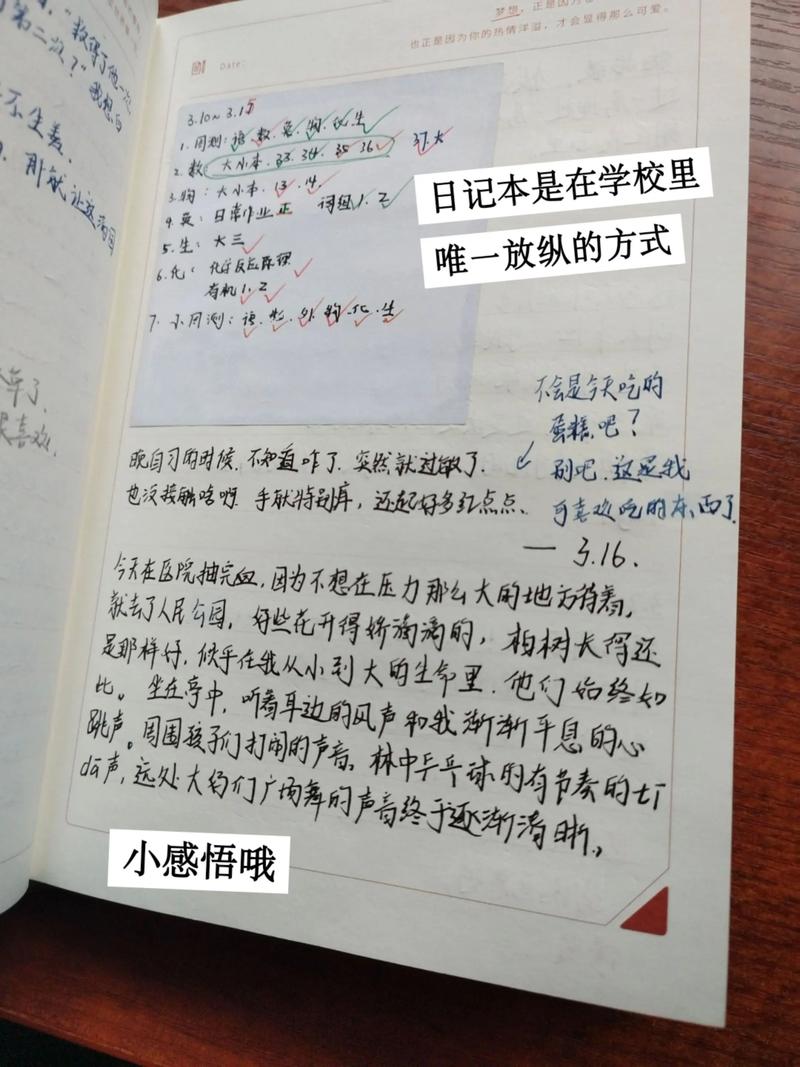 "数得了他一次
第二次?"我想
不生羡.
那就让这
年了.
喜欢.
梦想,正是因为
也正是因为你的热情洋溢,才会显得那么可爱。
Date:
3.10~3.15
1.周测:语.数.英.物.化.生
2.数:大小本.33.34.35 36 37.大
3.物:大小本.13.14.
4.英:日常作业正 词组1.2
5.生:大三
6.化:化学反应原理
有机1.2
7.小周测:语.数.外.物.化.生
日记本是在学校里
唯一放纵的方式
不会是今天吃的
蛋糕吧?
别吧.这是我
可喜欢吃的东西了
晚自习的时候.不知道咋了.突然就过敏了.
也没接触啥呀.手肿特别厍,还起好多红点点、
— 3.16.
今天在医院抽完血,因为不想在压力那么大的地方待着,
就去了人民公园,好些花开得娇滴滴的,柏树长得还
是那样好,似乎在我从小到大的生命里.他们始终如
比。坐在亭中,听着耳边的风声和我渐渐平息的心
跳声。周围孩子们打闹的声音。林中乒乓球的有节奏的tī
dā声,远处大妈们广场舞的声音终于逐渐清晰。
小感悟哦